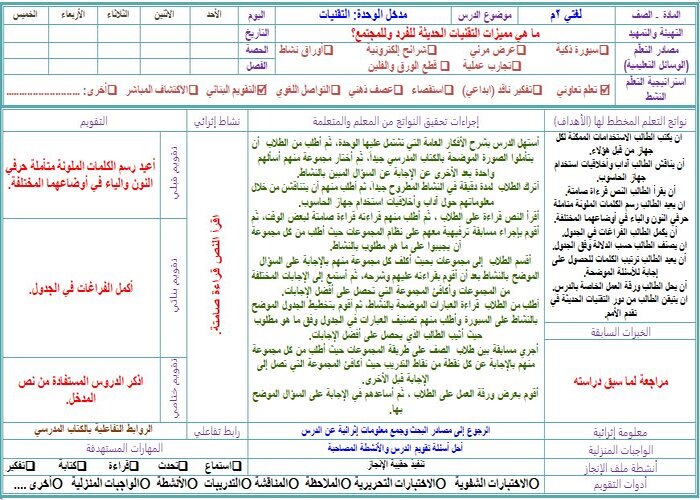 المادة ـ الصف لغتي ٢م موضوع الدرس مدخل الوحدة: التقنيات اليوم الأحد الاثنين الثلاثاء الأربعاء الخميس
التهيئة والتمهيد ما هي مميزات التقنيات الحديثة للفرد وللمجتمع؟ التاريخ
مصادر التعلم (الوسائل التعليمية) سبورة ذكية عرض مرئي شرائح إلكترونية أوراق نشاط الحصة
تجارب عملية قطع الورق والفلين الفصل
استراتيجية التعلم النشط ☑ تعلم تعاوني تفكير ناقد (ابداعي) استقصاء عصف ذهني التواصل اللغوي ☑ التقويم البنائي الاكتشاف المباشر أخرى: ............................
نواتج التعلم المخطط لها (الأهداف)
أن يكتب الطالب الاستخدامات الممكنة لكل
جهاز من قبل هؤلاء.
أن يناقش الطالب آداب وأخلاقيات استخدام
جهاز الحاسوب.
أن يقرأ الطالب النص قراءة صامتة.
أن يعيد الطالب رسم الكلمات الملونة متأملة
حرفي النون والياء في أوضاعهما المختلفة.
أن يكمل الطالب الفراغات في الجدول.
أن يصنف الطالب حسب الدلالة وفق الجدول.
أن يعيد الطالب ترتيب الكلمات للحصول على
إجابة للأسئلة الموضحة.
أن يحل الطالب ورقة العمل الخاصة بالدرس.
أن يتيقن الطالب من دور التقنيات الحديثة في
تقدم الأمم.
الخبرات السابقة
مراجعة لما سبق دراسته
إجراءات تحقيق النواتج من المعلم والمتعلمة
أستهل الدرس بشرح الأفكار العامة التي تشتمل عليها الوحدة، ثم أطلب من الطلاب أن
يتأملوا الصورة الموضحة بالكتاب المدرسي جيداً، ثم أختار مجموعة منهم أسألهم
واحدة بعد الأخرى عن الإجابة عن السؤال المبين بالنشاط.
أترك الطلاب لمدة دقيقة في النشاط المطروح جيداً، ثم أطلب منهم أن يتناقشن من خلال
معلوماتهم حول آداب وأخلاقيات استخدام جهاز الحاسوب.
أقرأ النص قراءة على الطلاب ، ثم أطلب منهم قراءته قراءة صامتة لبعض الوقت، ثم
أقوم بإجراء مسابقة ترفيهية معهم على نظام المجموعات حيث أطلب من كل مجموعة
أن يجيبوا على ما هو مطلوب بالنشاط.
أقسم الطلاب إلى مجموعات بحيث أكلف كل مجموعة منهم بالإجابة على السؤال
الموضح بالنشاط بعد أن أقوم بقراءته عليهم وشرحه، ثم أستمع إلى الإجابات المختلفة
من المجموعات وأكافئ المجموعة التي تحصل على أفضل الإجابات.
أطلب من الطلاب قراءة العبارات الموضحة بالنشاط، ثم أقوم بتخطيط الجدول الموضح
بالنشاط على السبورة وأطلب منهم تصنيف العبارات في الجدول وفق ما هو مطلوب
حيث أثيب الطالب الذي يحصل على أفضل الإجابات.
أجري مسابقة بين طلاب الصف على طريقة المجموعات حيث أطلب من كل مجموعة
منهم بالإجابة عن كل نقطة من نقاط التدريب حيث أكافئ المجموعة التي تصل إلى
الإجابة قبل الأخرى.
أقوم بعرض ورقة العمل على الطلاب ، ثم أساعدهم في الإجابة على السؤال الموضح
بها.
نشاط إثرائي
اقرأ النص قراءة صامتة.
التقويم
تقويم قبلي
أعيد رسم الكلمات الملونة متأملة حرفي
النون والياء في أوضاعهما المختلفة.
تقويم بنائي
أكمل الفراغات في الجدول.
تقويم ختامي
اذكر الدروس المستفادة من نص
المدخل.
معلومة إثرائية الرجوع إلى مصادر البحث وجمع معلومات إثرائية عن الدرس رابط تفاعلي الروابط التفاعلية بالكتاب المدرسي
الواجبات المنزلية أحل أسئلة تقويم الدرس والأنشطة المصاحبة المهارات المستهدفة
أنشطة ملف الإنجاز تنفيذ حقيبة الإنجاز استماع تحدث قراءة كتابة تفكير
أدوات التقويم الاختبارات الشفوية الاختبارات التحريرية الملاحظة المناقشة التدريبات الأنشطة الواجبات المنزلية أخرى ....